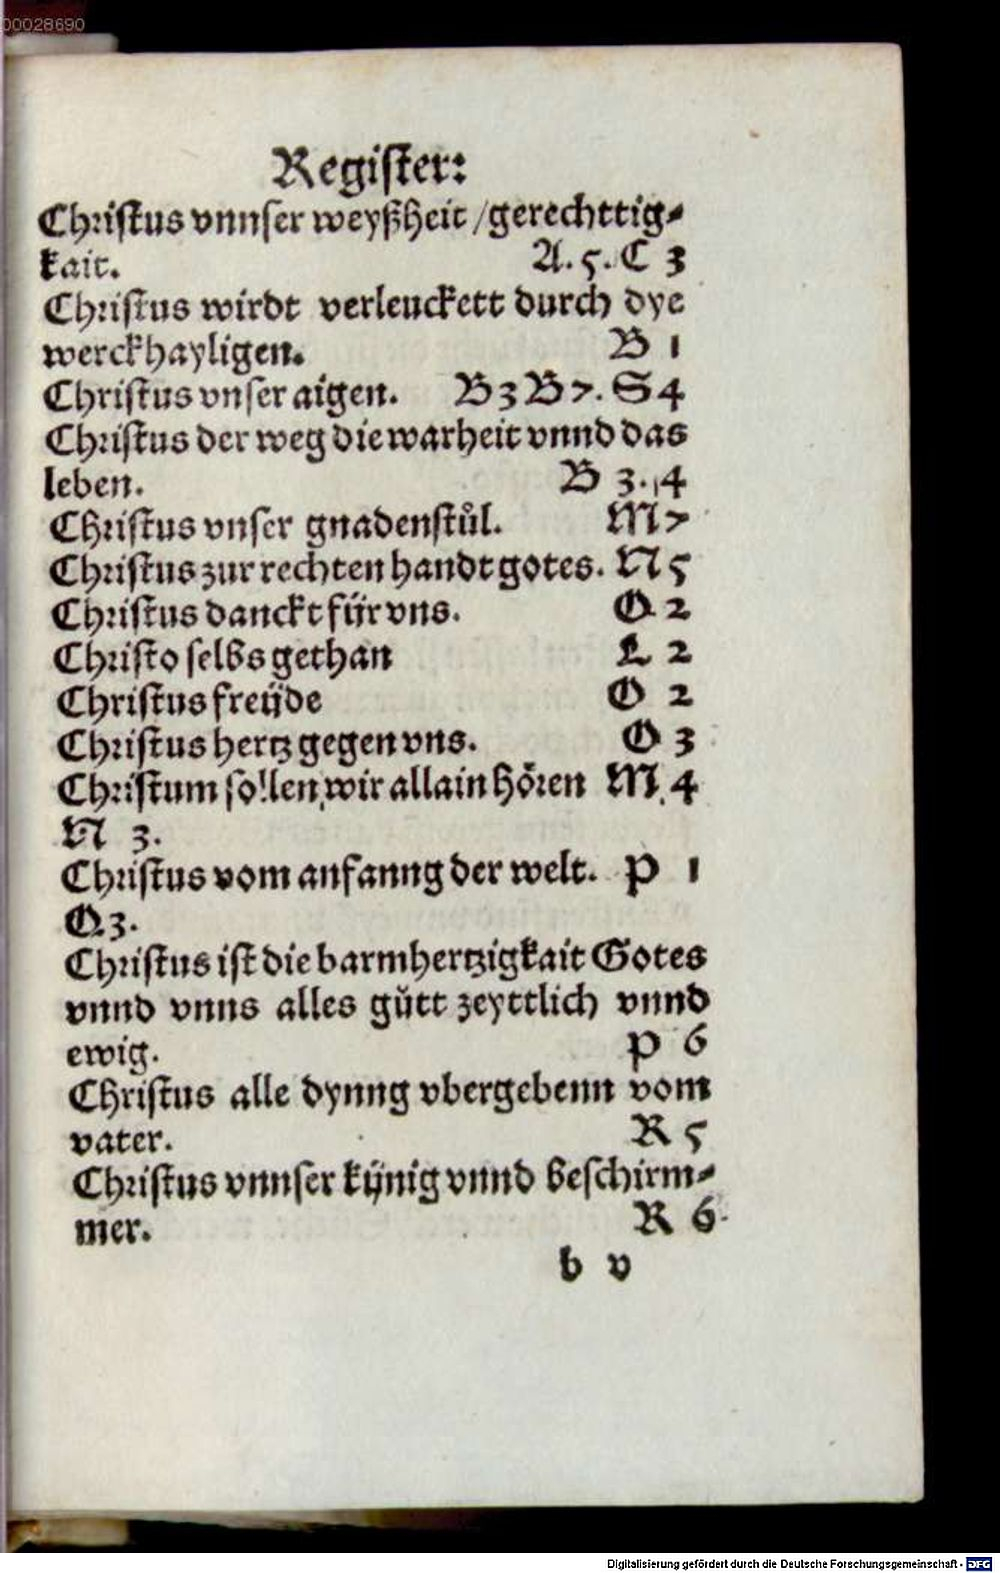 00028690
Register:
Christus vnnser weyßheit / gerechttig⸗
kait. A. 5. C 3
Christus wirdt verleuckett durch dye
werckhayligen. B 1
Christus vnser aigen. B 3 B 7. S 4
Christus der weg die warheit vnnd das
leben. B 3. 4
Christus vnser gnadenstůl. M 7
Christus zur rechten handt gotes. N 5
Christus danckt für vns. O 2
Christo selbs gethan L 2
Christus freüde O 2
Christus hertz gegen vns. O 3
Christum sollen wir allain hören M. 4
N 3.
Christus vom anfanng der welt. P 1
Q 3.
Christus ist die barmhertzigkait Gotes
vnnd vnns alles gůtt zeyttlich vnnd
ewig. P 6
Christus alle dynng vbergebenn vom
vater. R 5
Christus vnnser künig vnnd beschirm⸗
mer. R 6.
b v
Digitalisierung gefördert durch die Deutsche Forschungsgemeinschaft - DFG